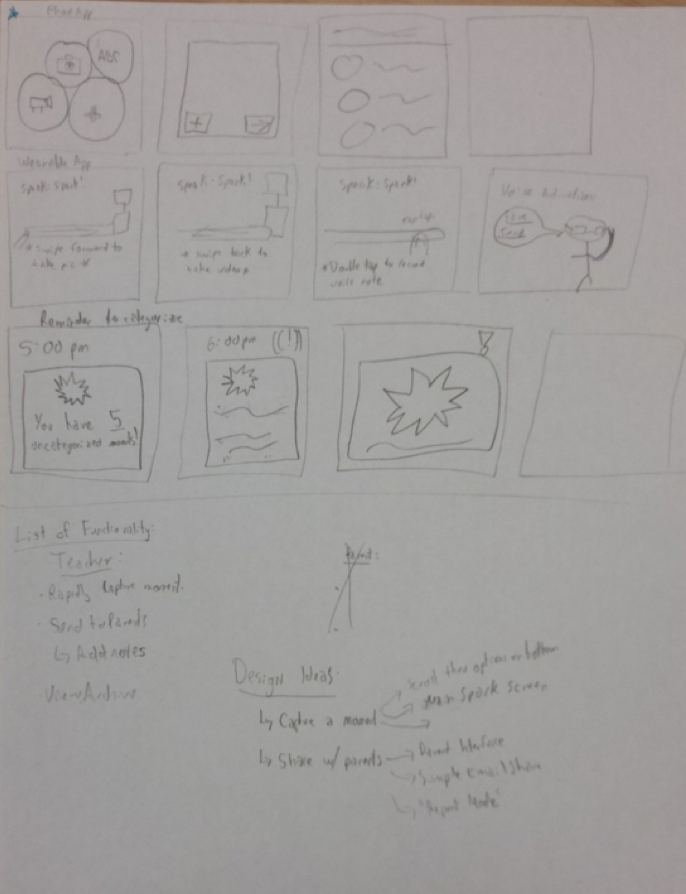 Phone App
ABC
Wearable App
Spark: Spark!
* Swipe forward to
take pic *
Spark: Spark!
* Swipe back to
take video *
Spark: Spark!
* Double tap to record
voice note
Voice Activation
Send
Reminder to categorize
5:00 pm
You have 5
uncategorized moments!
6:00 pm ((!))
List of Functionality:
Teacher:
· Rapidly Capture moment.
· Send to Parents
↳ Add notes
· View Archive
Parent:
Design Ideas:
↳ Capture a moment
Scroll thru options on bottom
Main Spark Screen
↳ Share w/ parents
Parent Interface
Simple Email Share
"Report Mode"